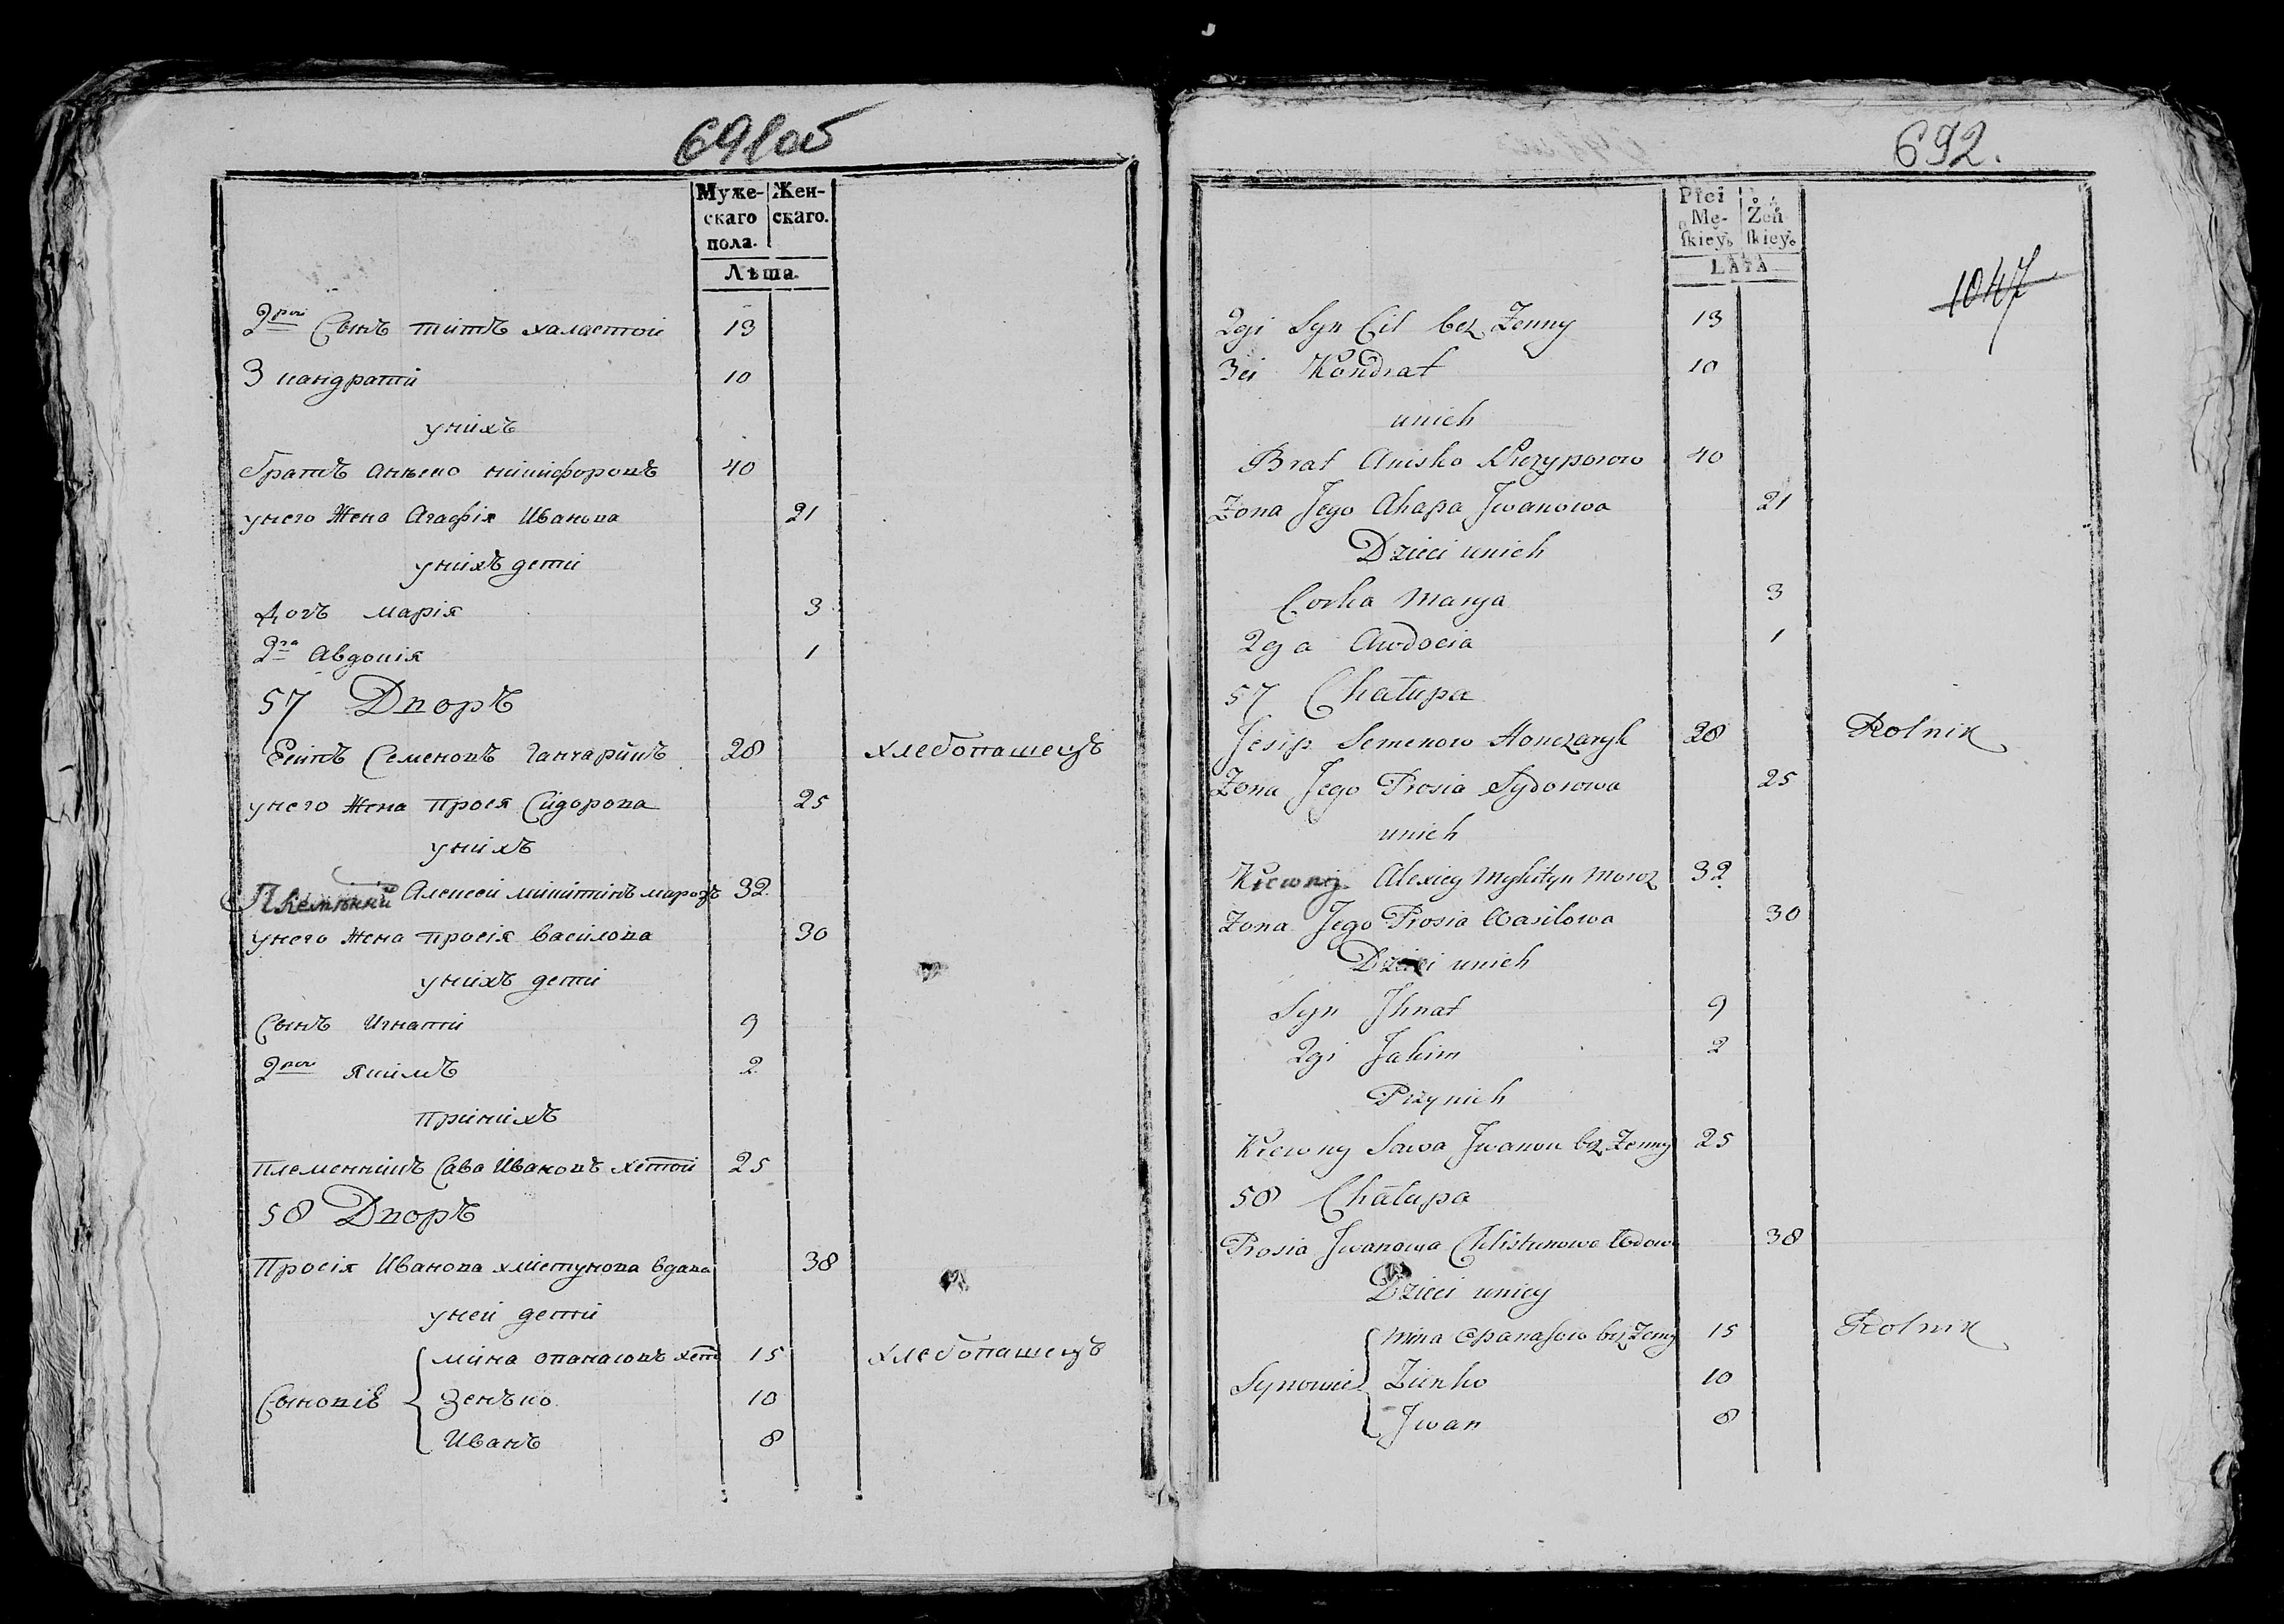 691об
Муже-
скаго
пола.
Жен-
скаго.
Лѣта.
2рой Сынъ титъ халастой 13
3 кандратй 10
унихъ
братъ анѣско никифоровъ 40
унего Жена Агафія Иванова 21
унихъ дети
Дочъ марія 3
2га Авдокія 1
57 Дворъ
Есипъ Семеновъ Ганчарикъ 28 хлебопашецъ
унего Жена прося Сидорова 25
унихъ
Алексей микитинъ марозъ 32
унего Жена просія василова 30
унихъ дети
Сынъ Игнатй 9
2рой Якимъ 2
принихъ
племенникъ Сава Ивановъ хстой 25
58 Дворъ
Просія Иванова хлистунова вдова 38
уней дети
Сыновіе
мина опанасовъ хсто 15 хлебопашецъ
Зенѣко 10
Иванъ 8
692.
Płci
Mę-
ſkiey.
Żeń
ſkiey.
LATA
1047
2gi Syn Cit bez Zenny 13
3ci Kondrat 10
unich
Brat Anisko Niczyporow 40
Zona Jego Ahapa Jwanowa 21
Dzieci unich
Corka Marya 3
2ga Awdocia 1
57 Chałupa
Jesip Semenow Honczaryk 28 Rolnik
Zona Jego Prosia Sydorowa 25
unich
Krewny Alexiey Mykityn Moroz 32
Zona Jego Prosia Wasilowa 30
Dzieci unich
Syn Jhnat 9
2gi Jakim 2
Przynich
Krewny Sawa Jwanow bez Zenny 25
58 Chałupa
Prosia Jwanowa Chlistunowa Wdowa 38
Dzieci uniey
Synowie
Mina Opanasow bez Zenny 15 Rolnik
Zienko 10
Jwan 8